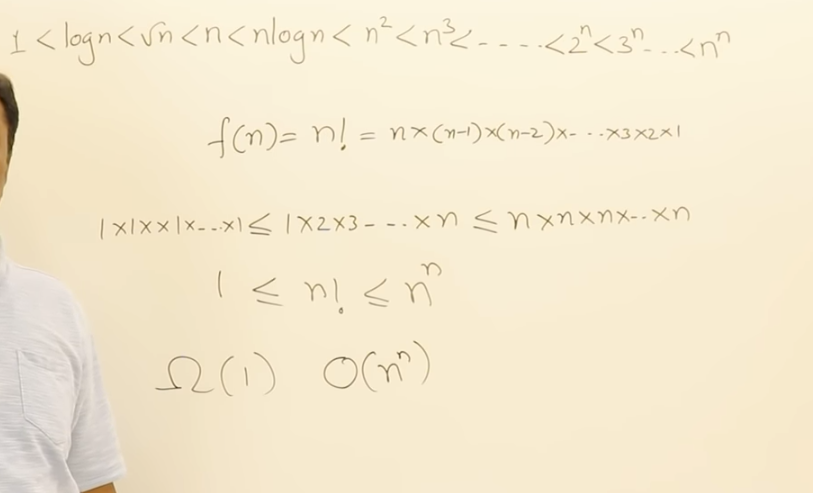 1 < logn < √n < n < nlogn < n² < n³ < - - - - < 2ⁿ < 3ⁿ - - - < nⁿ
f(n) = n! = n×(n-1)×(n-2)×- - - ×3×2×1
1×1××1×- - - ×1 ≤ 1×2×3- - - - ×n ≤ n×n×n×- - ×n
1 ≤ n! ≤ nⁿ
Ω(1) O(nⁿ)